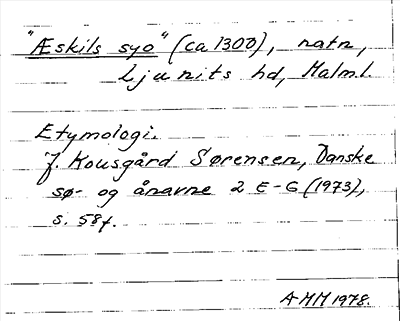 "Æskils syo" (ca 1300), natn,
Ljunits hd, Malm.l.
Etymologi.
J. Kousgård Sørensen, Danske
sø- og ånavne 2 E-G (1973),
s. 58f.
AMM 1978.